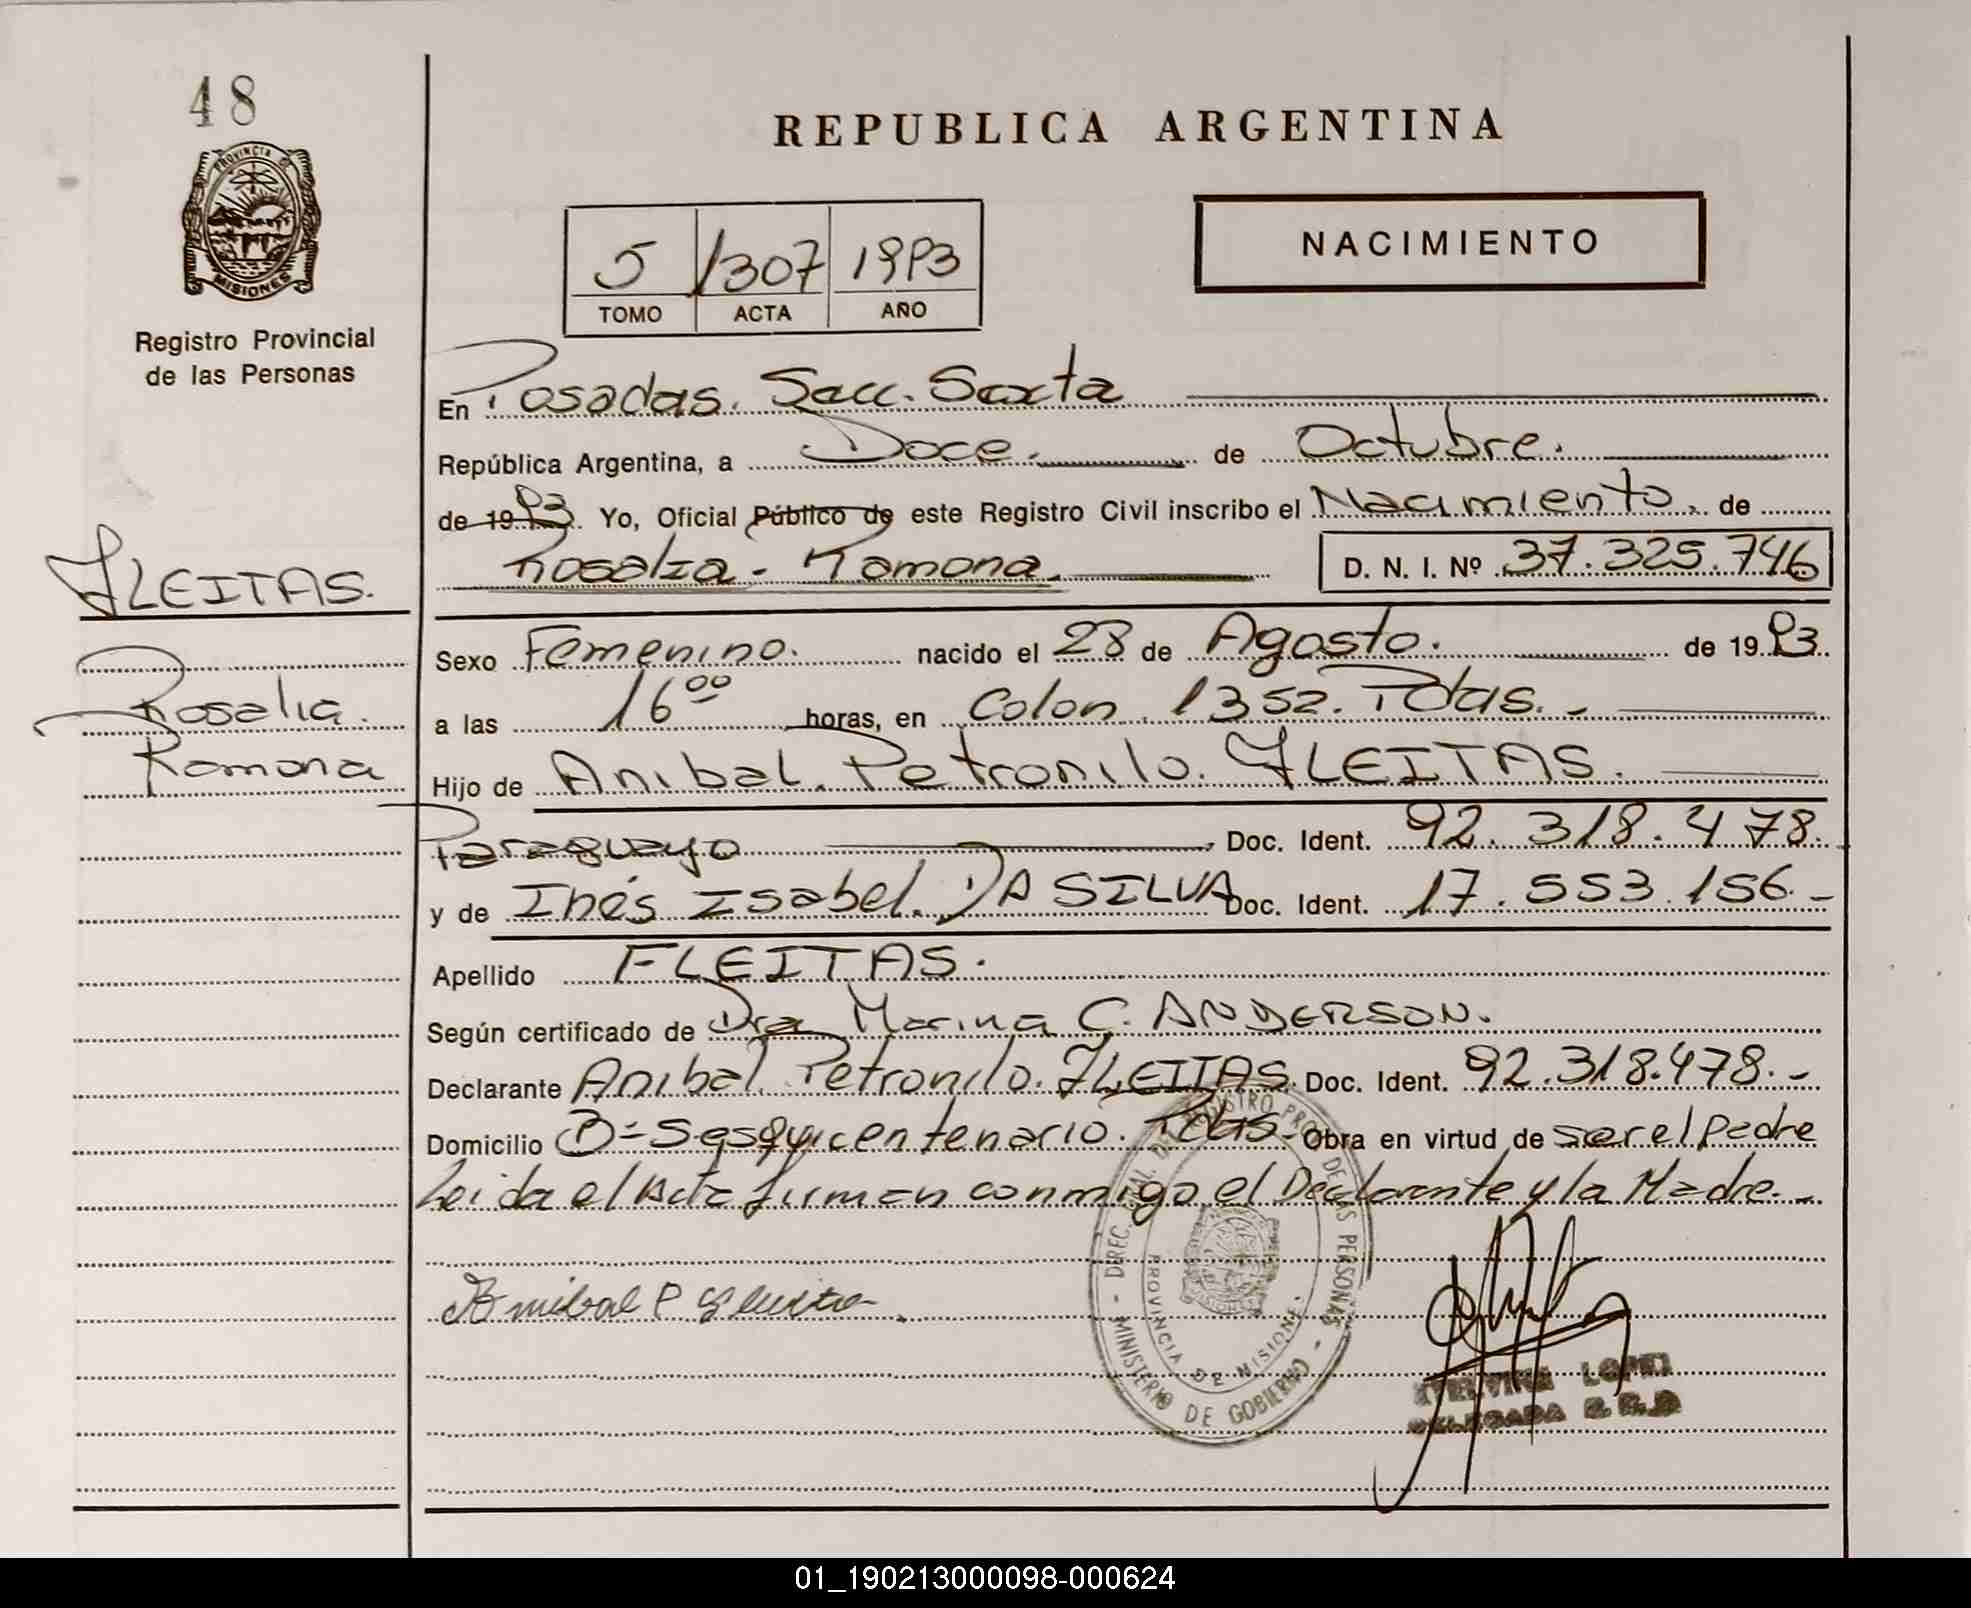 48
PROVINCIA DE
MISIONES
Registro Provincial
de las Personas
REPUBLICA ARGENTINA
NACIMIENTO
5 1307 1993
TOMO ACTA AÑO
En Posadas. Secc. Sexta
República Argentina, a Doce. de Octubre.
de 1993. Yo, Oficial Público de este Registro Civil inscribo el Nacimiento. de
Rosalia - Ramona. D. N. I. Nº 37.325.746
FLEITAS.
Rosalia.
Ramona
Sexo Femenino. nacido el 28 de Agosto. de 1993.
a las 16 00 horas, en Colon. 1352. Pdas. -
Hijo de Anibal. Petronilo. FLEITAS.
Paraguayo Doc. Ident. 92.318.478.
y de Inés Isabel. DA SILVA Doc. Ident. 17.553.156.-
Apellido FLEITAS.
Según certificado de Dra Marina C. ANDERSON.
Declarante Anibal. Petronilo. FLEITAS. Doc. Ident. 92.318.478.-
Domicilio Bº Sesquicentenario. Pdas- Obra en virtud de ser el Padre
Leida el Acta firman conmigo el Declarante y la Madre.-
Anibal P Fleita
PROVINCIA DE MISIONES
MINISTERIO DE GOBIERNO
LOPEZ
DELEGADA
01_190213000098-000624